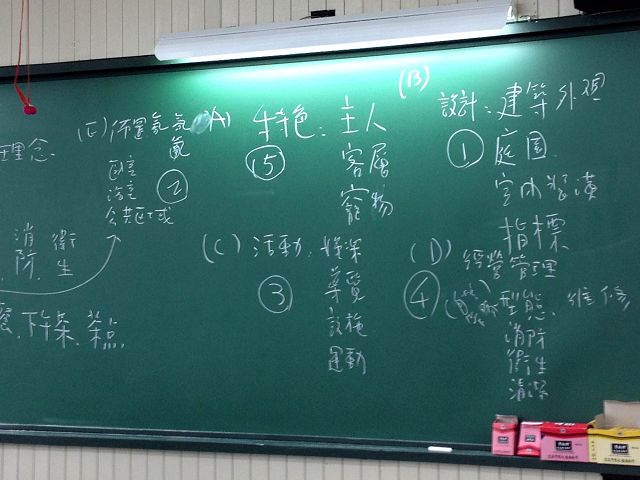 理念
消 衛
防 生
下午茶、茶點
(E) 佈置氣氛
臥室
浴室
公共區域
②
(A) 特色:主人
⑤
客層
寵物
(B)
設計:建築外觀
① 庭園
室內裝潢
指標
(C) 活動:
③
導覽
設施
運動
(D) 經營管理
④
型態、維修
消防
衛生
清潔